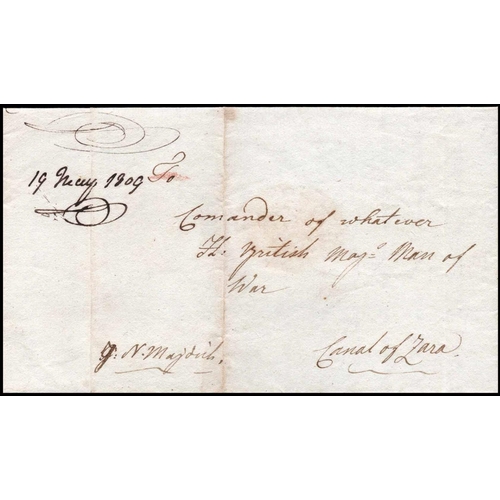 19 May 1809 To
Comander of whatever
H. British Maj.º Man of
War
Canal of Zara.